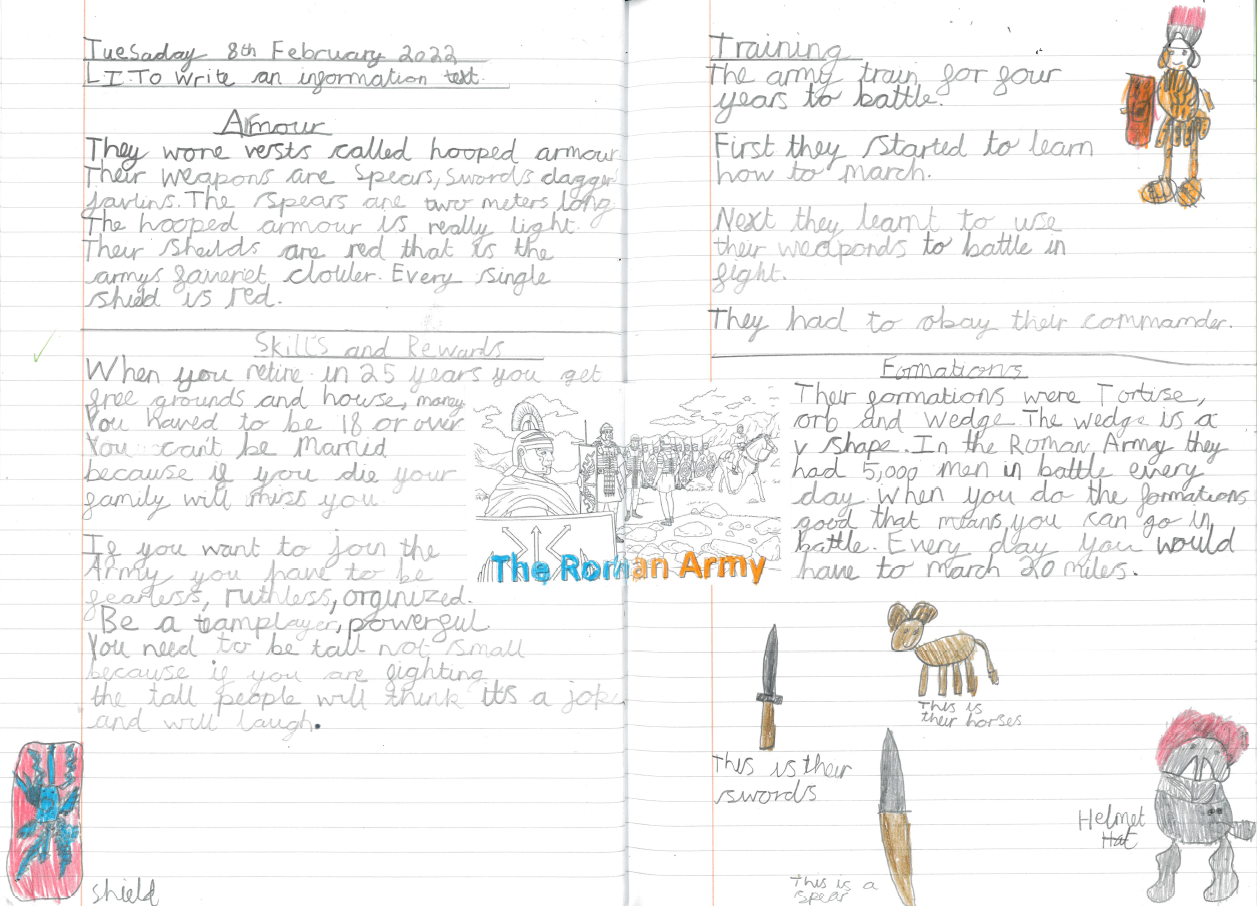 Tuesaday 8th February 2022
LI:To write an information text.
Amour
They wore versts called hooped armour
Their weapons are spears, swords dagger
javlins. The spears are two meters long
The hooped armour is really light.
Their sheilds are red that is the
armys faveriet clouler. Every single
shield is red.
Skill's and Rewards
When you retire in 25 years you get
free grounds and house, money
You haved to be 18 or over
You can't be Marrid
because if you die your
family will miss you
If you want to join the
Army you have to be
fearless, ruthless, orginized.
Be a teamplayer, powerful.
You need to be tall not small
because if you are fighting
the tall people will think its a joke
and will laugh.
shield
The Roman Army
Training
The army train for four
years to battle.
First they started to learn
how to march.
Next they learnt to use
their weaponds to battle in
fight.
They had to obay their commamder.
Formations
Their formations were Tortise,
orb and Wedge. The wedge is a
v shape. In the Roman Army they
had 5,000 men in battle every
day. When you do the formations
good that means, you can go in
battle. Every day you would
have to march 20 miles.
This is
their horses
This is their
swords
Helmet
Hat
This is a
spear